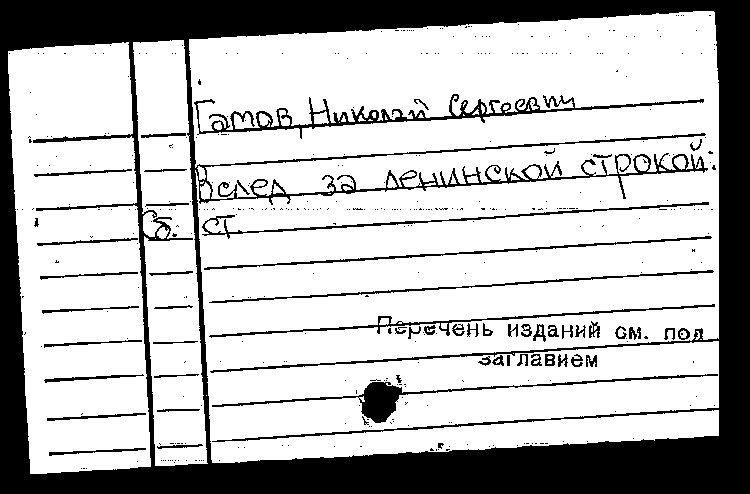 Гамов, Николай Сергеевич
Вслед за ленинской строкой:
Сб. ст.
Перечень изданий см. под
заглавием